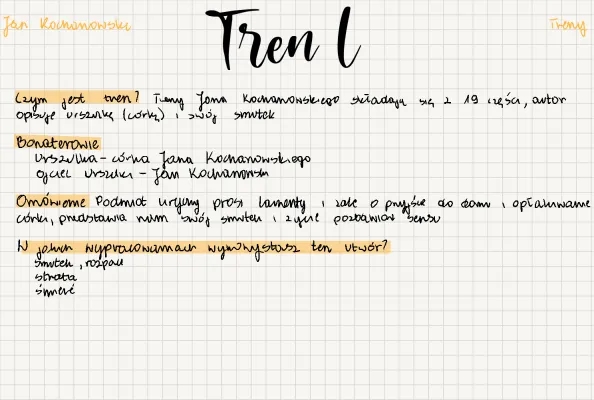 Jan Kochanowski
Treny
Tren I
Czym jest tren? Treny Jana Kochanowskiego składają się z 19 części, autor
opisuje Urszulkę (córkę) i swój smutek
Bohaterowie
Urszulka - córka Jana Kochanowskiego
ojciec Urszulki - Jan Kochanowski
Omówienie Podmiot liryczny prosi lamenty i żale o przyjście do domu i opłakiwanie
córki, przedstawia nam swój smutek i życie pozbawione sensu
W jakich wypracowaniach wykorzystasz ten utwór?
smutek, rozpacz
strata
śmierć